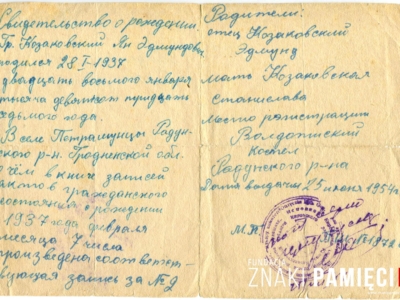 Свидетельство о рождении
Гр. Козаковский Ян Эдмундов.
родился 28/I-1937
двадцать восьмого января
тысяча девятьсот тридцать
седьмого года.
В селе Радун-
ского р-на Гродненской обл.
о чём в книге записей
актов гражданского
состояния о рождении
1937 года февраля
месяца 7 числа
произведена соответст-
вующая запись за № 2
Родители:
отец Козаковский
Эдмунд
мать Козаковская
Станислава
Место регистрации
костел
Радунского р-на
Дата выдачи 25 июня 1954
М.П.
FUNDACJA
ZNAKI PAMIĘCI